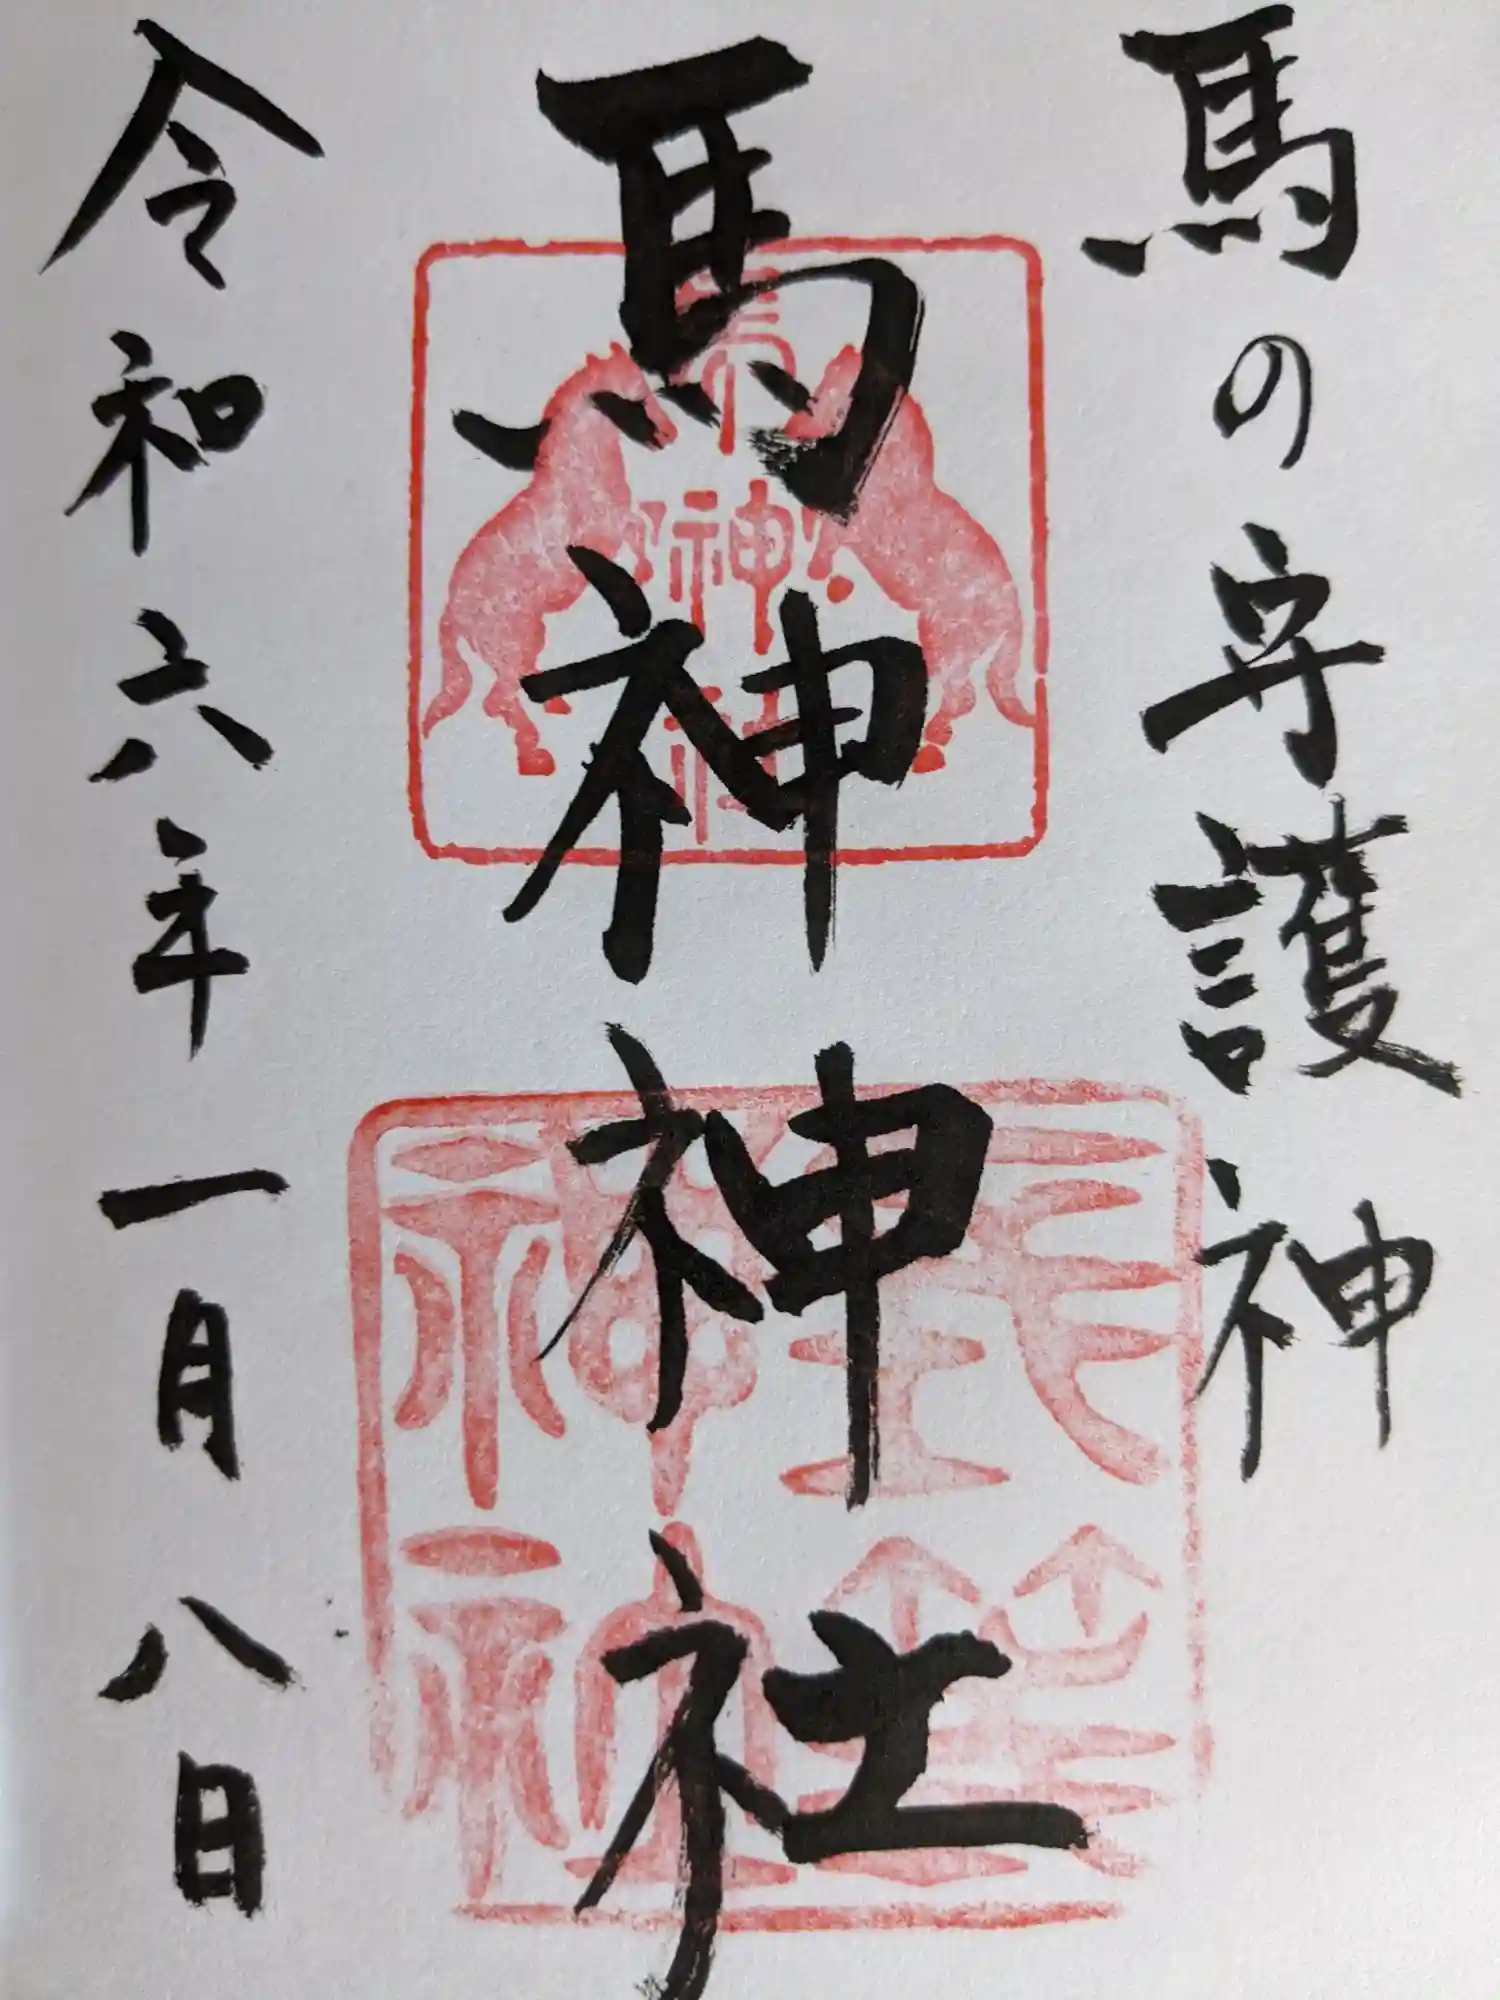 馬の守護神
馬神神社
令和六年一月八日
馬
神
社